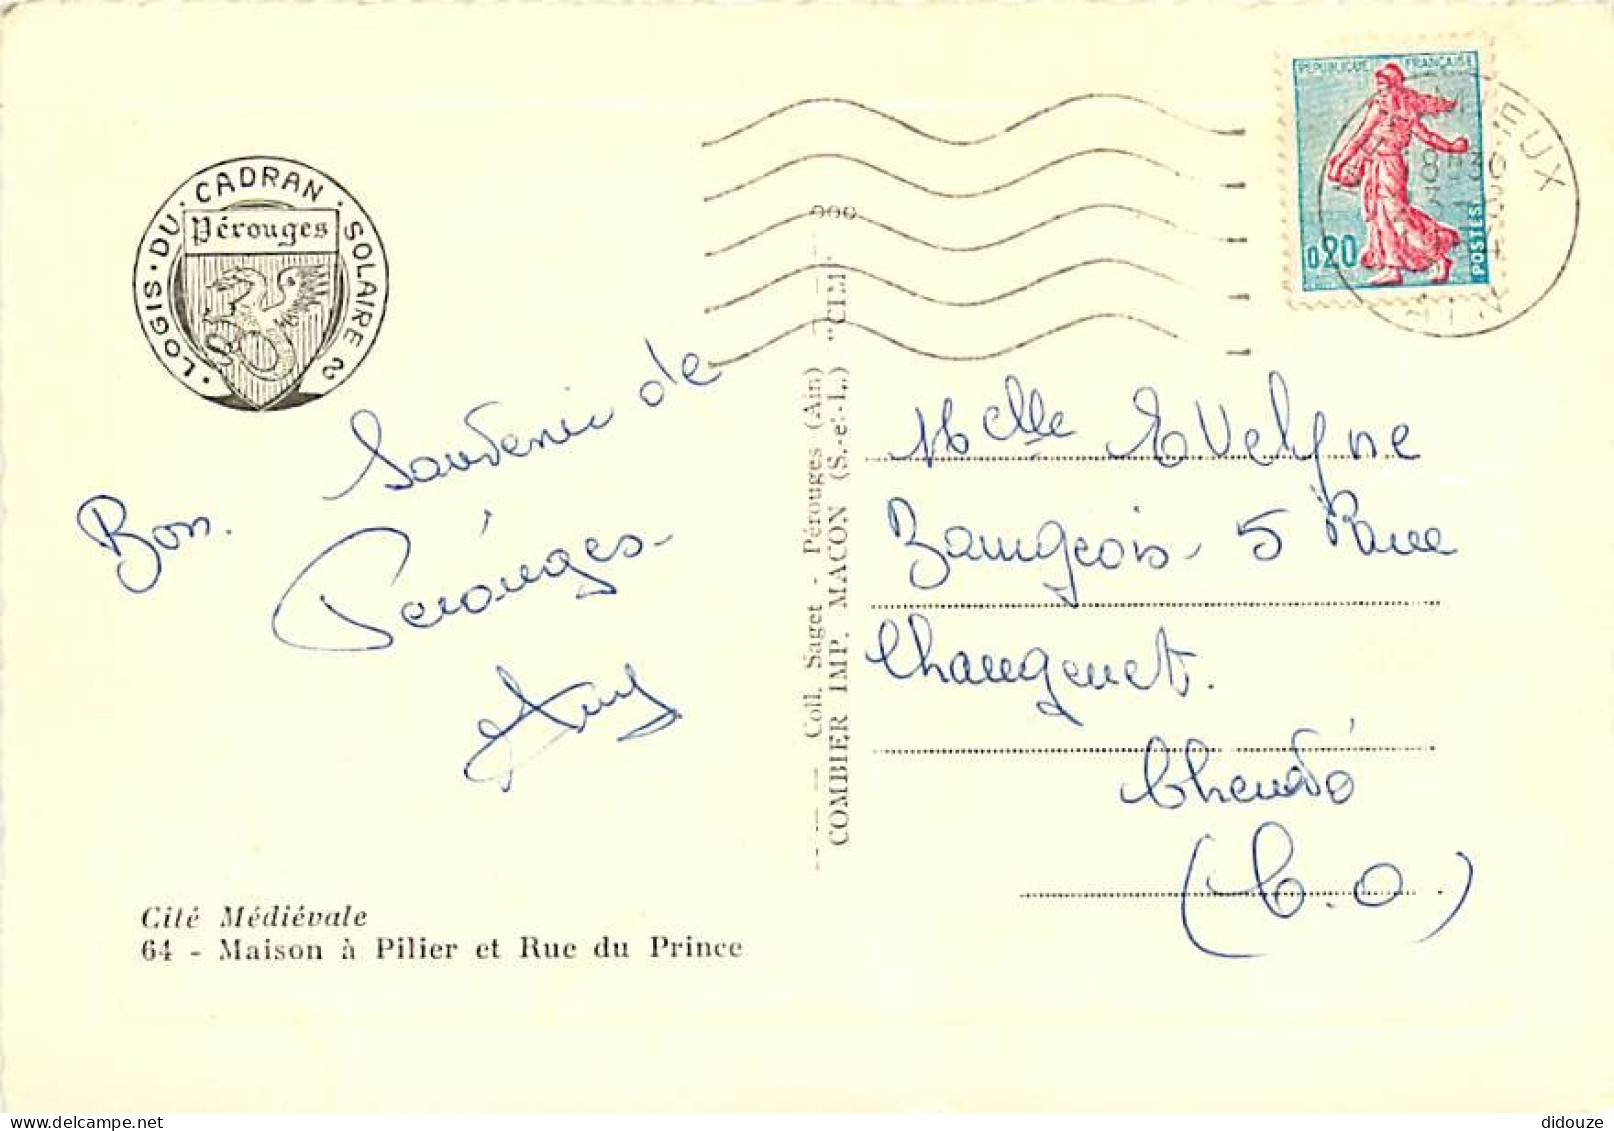 LOGIS · DU · CADRAN · SOLAIRE
Pérouges
Bon Souvenir de
Pérouges
Cité Médiévale
64 - Maison à Pilier et Rue du Prince
Coll. Saget - Pérouges (Ain)
COMBIER IMP. MACON (S.-et-L.) "CIM"
REPUBLIQUE FRANÇAISE
0,20
POSTES
IEUX
AIN
Melle Evelyne
Bourgeois - 5 Rue
Changenet.
(C.O)
didouze